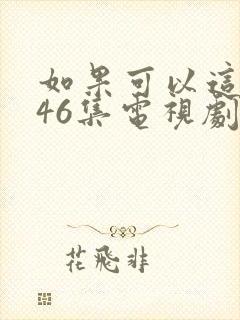 如果可以這
46集電視劇
花飛非